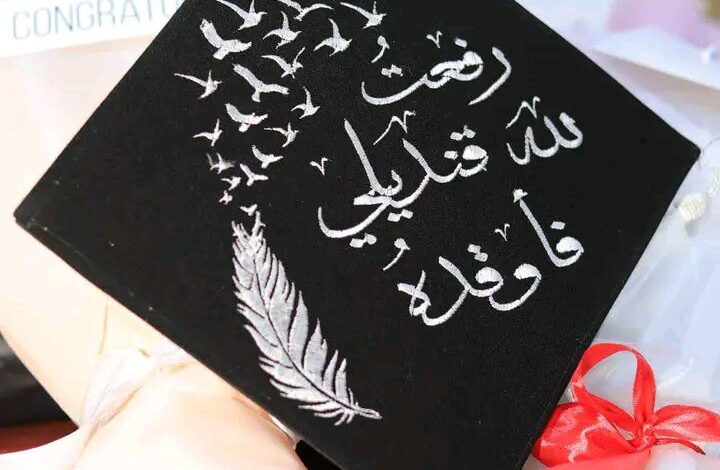 CONGRATU
رفعتُ
لله قنديلي
فأوقدهُ